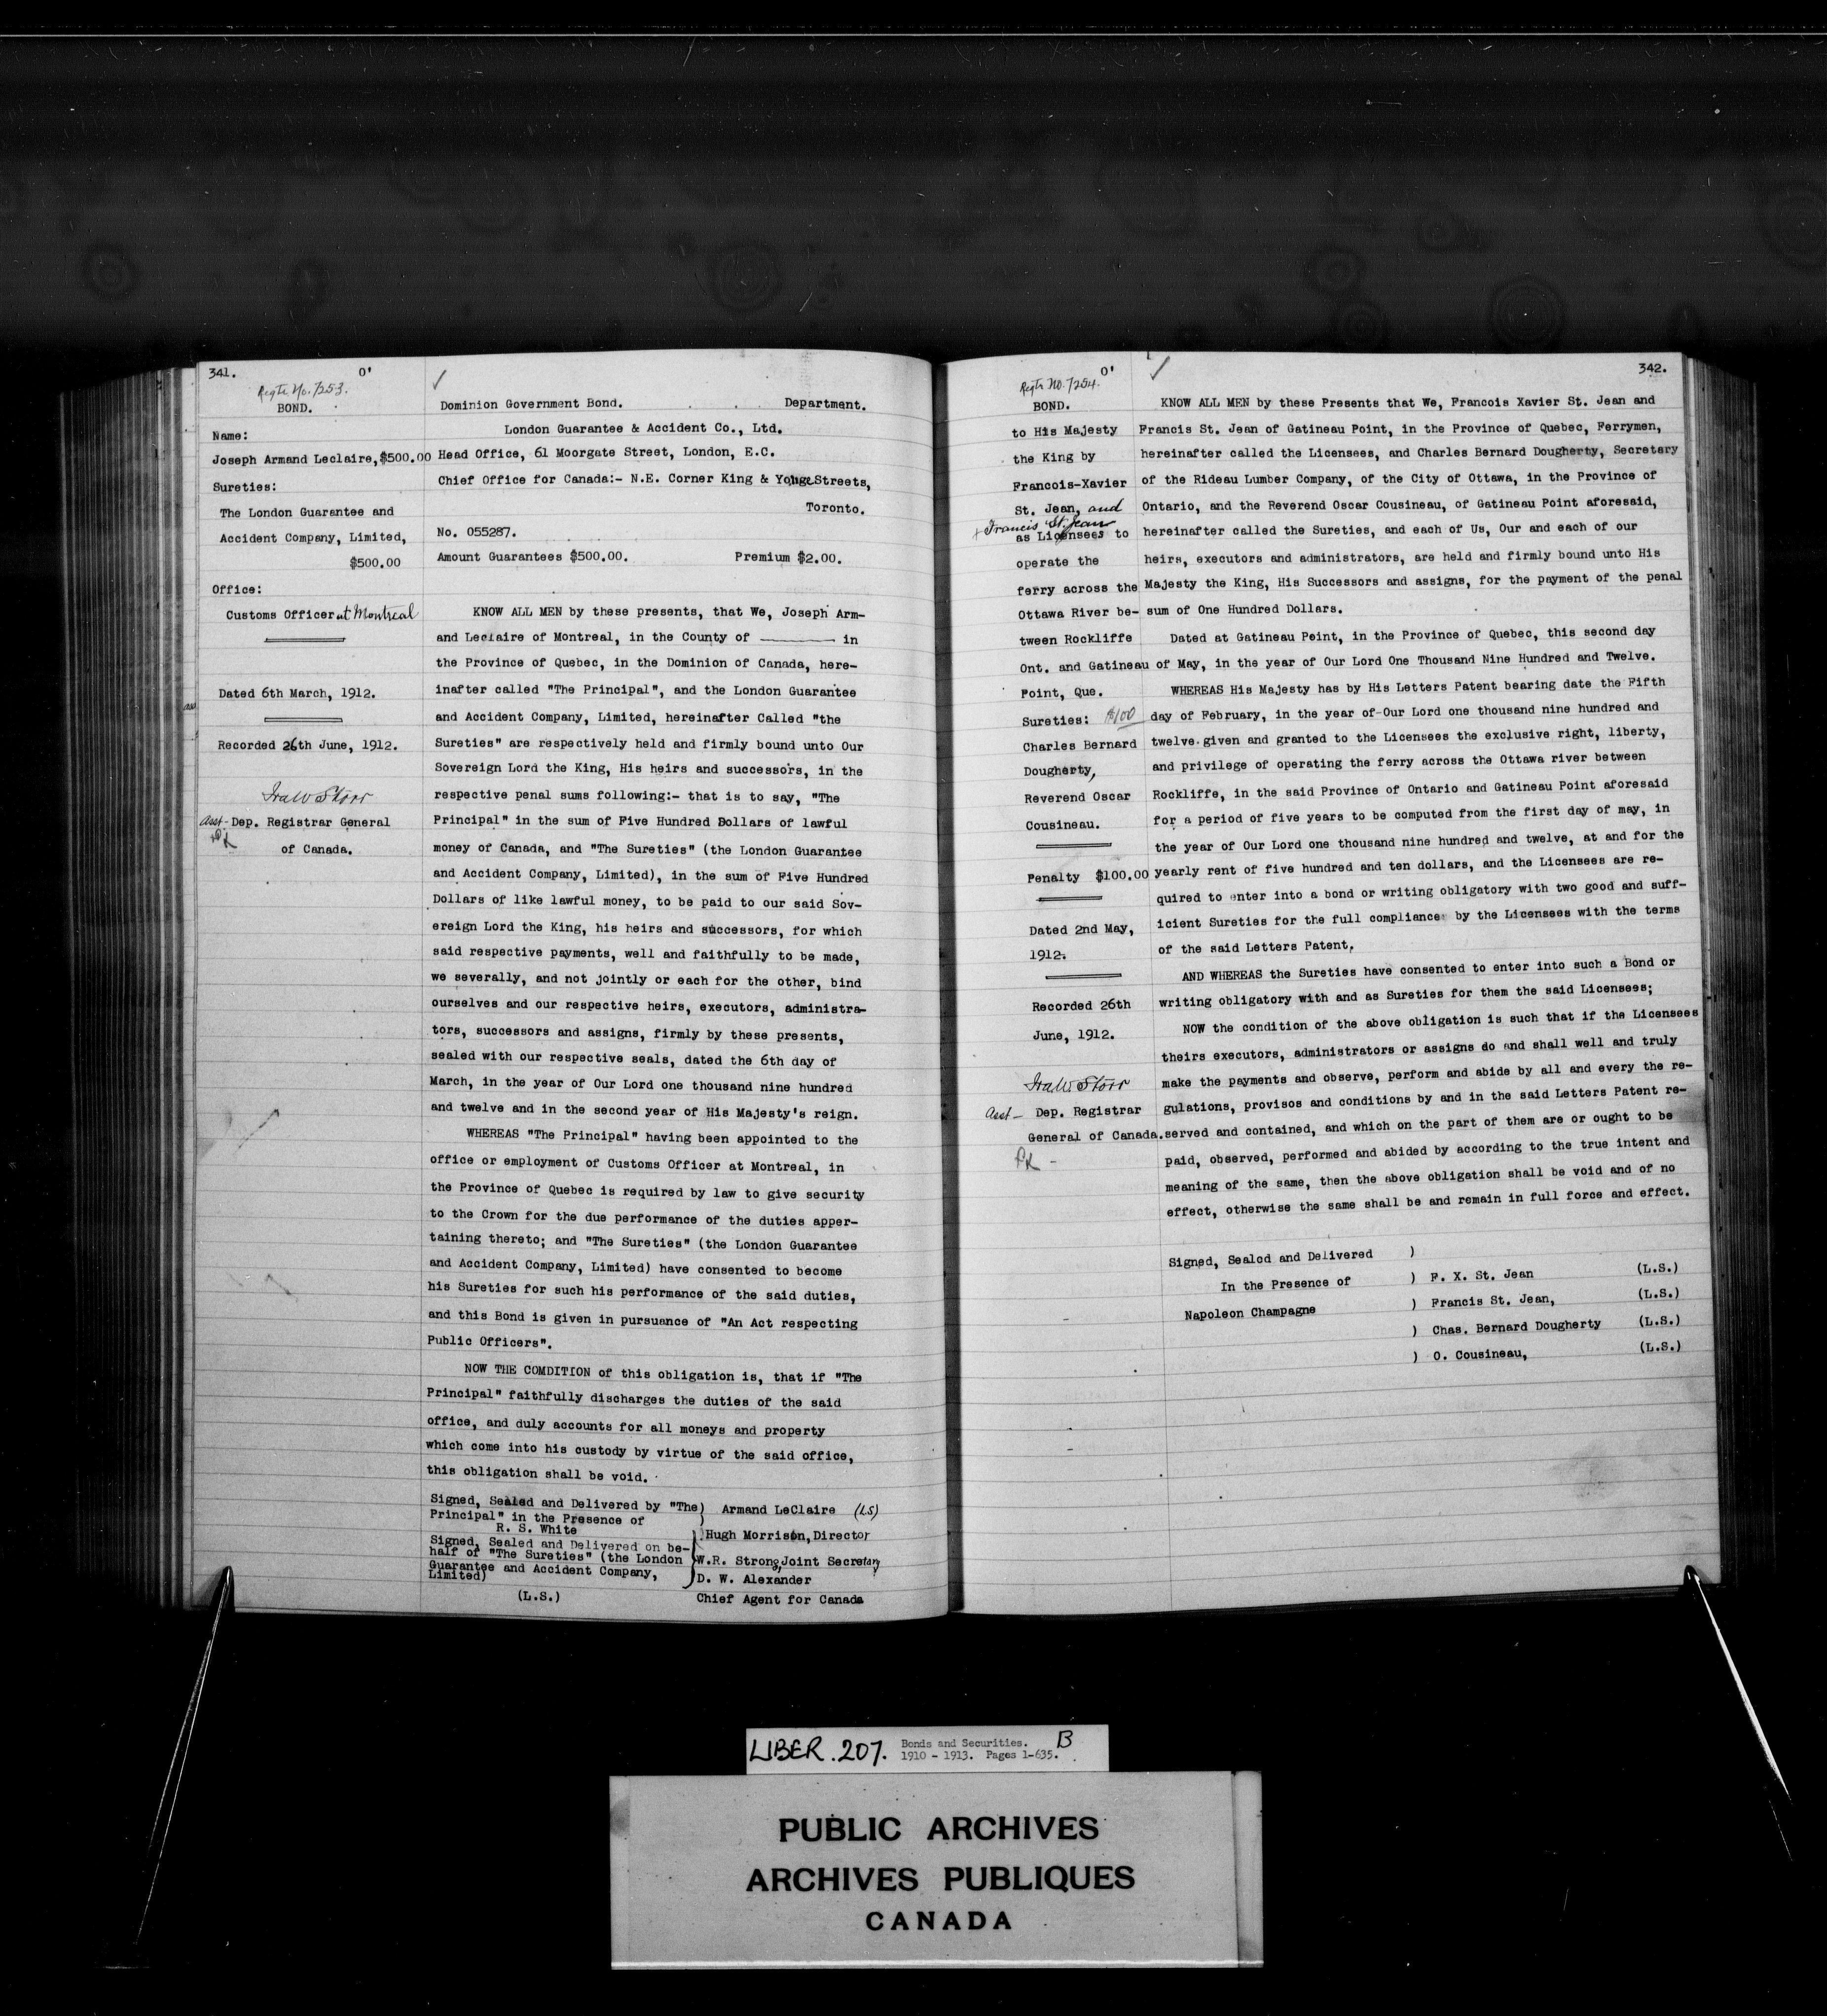 341.
O'
Regtr No. 7253.
BOND.
Name:
Joseph Armand Leclaire, $500.00
Sureties:
The London Guarantee and
Accident Company, Limited,
$500.00
Office:
Customs Officer at Montreal
Dated 6th March, 1912.
Recorded 26th June, 1912.
Ira W Storr
Asst- Dep. Registrar General
of Canada.
✓
Dominion Government Bond. Department.
London Guarantee & Accident Co., Ltd.
Head Office, 61 Moorgate Street, London, E.C.
Chief Office for Canada:- N.E. Corner King & Yonge Streets,
Toronto.
No. 055287.
Amount Guarantees $500.00. Premium $2.00.
KNOW ALL MEN by these presents, that We, Joseph Arm-
and Leclaire of Montreal, in the County of ———— in
the Province of Quebec, in the Dominion of Canada, here-
inafter called "The Principal", and the London Guarantee
and Accident Company, Limited, hereinafter Called "the
Sureties" are respectively held and firmly bound unto Our
Sovereign Lord the King, His heirs and successors, in the
respective penal sums following:- that is to say, "The
Principal" in the sum of Five Hundred Dollars of lawful
money of Canada, and "The Sureties" (the London Guarantee
and Accident Company, Limited), in the sum of Five Hundred
Dollars of like lawful money, to be paid to our said Sov-
ereign Lord the King, his heirs and successors, for which
said respective payments, well and faithfully to be made,
we severally, and not jointly or each for the other, bind
ourselves and our respective heirs, executors, administra-
tors, successors and assigns, firmly by these presents,
sealed with our respective seals, dated the 6th day of
March, in the year of Our Lord one thousand nine hundred
and twelve and in the second year of His Majesty's reign.
WHEREAS "The Principal" having been appointed to the
office or employment of Customs Officer at Montreal, in
the Province of Quebec is required by law to give security
to the Crown for the due performance of the duties apper-
taining thereto; and "The Sureties" (the London Guarantee
and Accident Company, Limited) have consented to become
his Sureties for such his performance of the said duties,
and this Bond is given in pursuance of "An Act respecting
Public Officers".
NOW THE COMDITION of this obligation is, that if "The
Principal" faithfully discharges the duties of the said
office, and duly accounts for all moneys and property
which come into his custody by virtue of the said office,
this obligation shall be void.
Signed, Sealed and Delivered by "The ) Armand LeClaire (LS)
Principal" in the Presence of )
R. S. White Hugh Morrison, Director
Signed, Sealed and Delivered on be-
half of "The Sureties" (the London W.R. Strong, Joint Secretary
Guarantee and Accident Company, D. W. Alexander
Limited)
(L.S.) Chief Agent for Canada
342.
O'
Regtr No. 7254.
BOND.
to His Majesty
the King by
Francois-Xavier
St. Jean, and
+ Francis St. Jean
as Licensees to
operate the
ferry across the
Ottawa River be-
tween Rockliffe
Ont. and Gatineau
Point, Que.
Sureties: $100
Charles Bernard
Dougherty,
Reverend Oscar
Cousineau.
Penalty $100.00
Dated 2nd May,
1912.
Recorded 26th
June, 1912.
Ira W Storr
Asst- Dep. Registrar
General of Canada.
✓
KNOW ALL MEN by these Presents that We, Francois Xavier St. Jean and
Francis St. Jean of Gatineau Point, in the Province of Quebec, Ferrymen,
hereinafter called the Licensees, and Charles Bernard Dougherty, Secretary
of the Rideau Lumber Company, of the City of Ottawa, in the Province of
Ontario, and the Reverend Oscar Cousineau, of Gatineau Point aforesaid,
hereinafter called the Sureties, and each of Us, Our and each of our
heirs, executors and administrators, are held and firmly bound unto His
Majesty the King, His Successors and assigns, for the payment of the penal
sum of One Hundred Dollars.
Dated at Gatineau Point, in the Province of Quebec, this second day
of May, in the year of Our Lord One Thousand Nine Hundred and Twelve.
WHEREAS His Majesty has by His Letters Patent bearing date the Fifth
day of February, in the year of Our Lord one thousand nine hundred and
twelve given and granted to the Licensees the exclusive right, liberty,
and privilege of operating the ferry across the Ottawa river between
Rockliffe, in the said Province of Ontario and Gatineau Point aforesaid
for a period of five years to be computed from the first day of may, in
the year of Our Lord one thousand nine hundred and twelve, at and for the
yearly rent of five hundred and ten dollars, and the Licensees are re-
quired to enter into a bond or writing obligatory with two good and suff-
icient Sureties for the full compliance by the Licensees with the terms
of the said Letters Patent.
AND WHEREAS the Sureties have consented to enter into such a Bond or
writing obligatory with and as Sureties for them the said Licensees;
NOW the condition of the above obligation is such that if the Licensees
theirs executors, administrators or assigns do and shall well and truly
make the payments and observe, perform and abide by all and every the re-
gulations, provisos and conditions by and in the said Letters Patent re-
served and contained, and which on the part of them are or ought to be
paid, observed, performed and abided by according to the true intent and
meaning of the same, then the above obligation shall be void and of no
effect, otherwise the same shall be and remain in full force and effect.
Signed, Sealed and Delivered )
In the Presence of ) F. X. St. Jean (L.S.)
Napoleon Champagne ) Francis St. Jean, (L.S.)
) Chas. Bernard Dougherty (L.S.)
) O. Cousineau, (L.S.)
LIBER. 207. Bonds and Securities. B
1910 - 1913. Pages 1-635.
PUBLIC ARCHIVES
ARCHIVES PUBLIQUES
CANADA